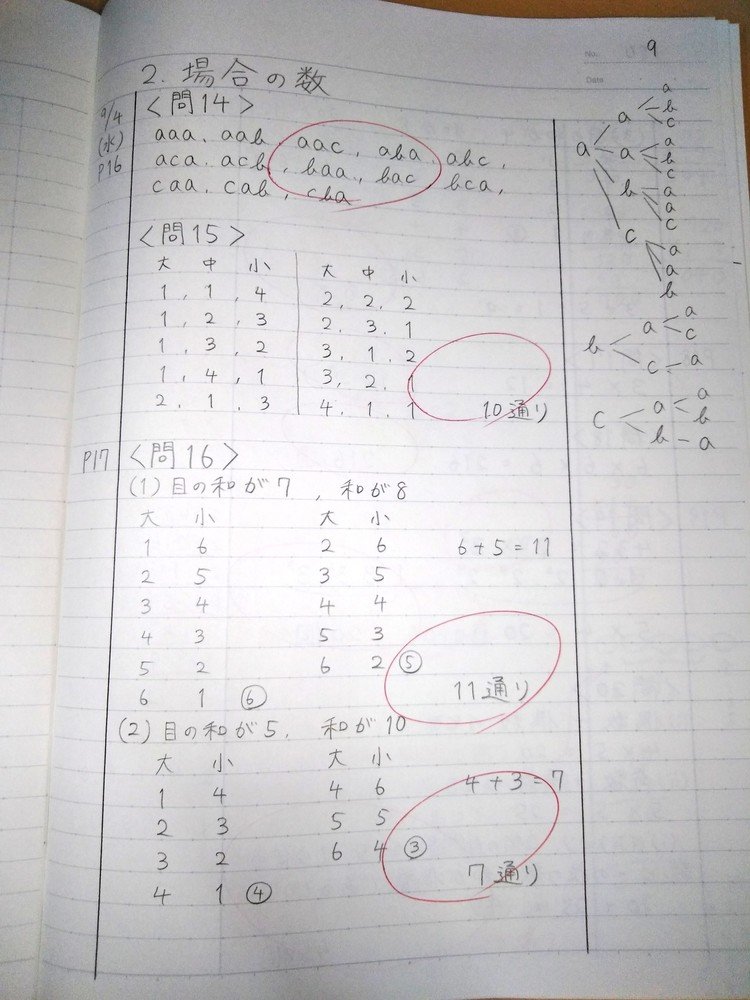 No. 9
Date
2. 場合の数
9/4
(水)
P16
<問14>
aaa, aab, aac, aba, abc,
aca, acb, baa, bac, bca,
caa, cab, cba
<問15>
大 中 小
1, 1, 4
1, 2, 3
1, 3, 2
1, 4, 1
2, 1, 3
大 中 小
2, 2, 2
2, 3, 1
3, 1, 2
3, 2, 1
4, 1, 1
10通り
P17
<問16>
(1) 目の和が7, 和が8
大 小 大 小
1 6 2 6 6+5=11
2 5 3 5
3 4 4 4
4 3 5 3
5 2 6 2 ⑤
6 1 ⑥ 11通り
(2) 目の和が5, 和が10
大 小 大 小
1 4 4 6 4+3=7
2 3 5 5
3 2 6 4 ③
4 1 ④ 7通り
a
a b
c
a
a a b
c
a
b a
c
a
c a
b
b a a
c
c a
c a a
b
b a